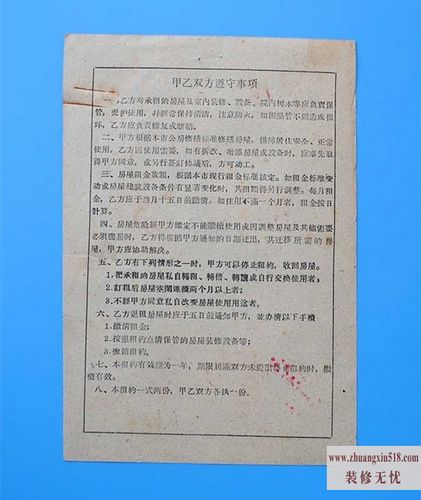 甲乙双方遵守事項
一、乙方对承租的房屋及室內装修、設备、院內树木等应負責保
管，爱护使用，并經常保持清洁，注意防火，如因照管不周造成損
坏，乙方应負責修复或賠賠。
二、甲方根据本市公房修繕标准修繕房屋，保障居住安全、正常
使用，乙方因使用需要，如有拆改、增添房屋或設备时，应事先取
得甲方同意，或另行签訂协議后，方可动工。
三、房屋租金数額，根据本市現行租金标准議定。如租金标准变
动或房屋建筑設备条件有显著变化时，其租額得另行調整。每月租
金，乙方应于当月十五日前繳清。如住用不滿一个月者，租金按日
計算。
四、房屋危險經甲方鑑定不能繼續使用或因調整房屋及其他需要
必須騰房时，乙方得根据甲方通知的日期迁出，其迁移所需的房
屋，甲方应协助解决。
五、乙方有下列情形之一时，甲方可以停止租約，收回房屋。
1.把承租的房屋私自轉租、轉借、轉讓或自行交換使用者；
2.訂租后房屋空閑連續两个月以上者；
3.不經甲方同意私自改变房屋使用用途者。
六、乙方退租房屋时应于五日前通知甲方，并办清以下手續
1.繳清租金；
2.按照租約点清保管的房屋装修設备等；
3.撤銷租約。
七、本租約有效期为一年，期限屆滿双方未提出 租約时，繼
續有效。
八、本租約一式两份，甲乙双方各执一份。
www.zhuangxiu518.com
装修无忧